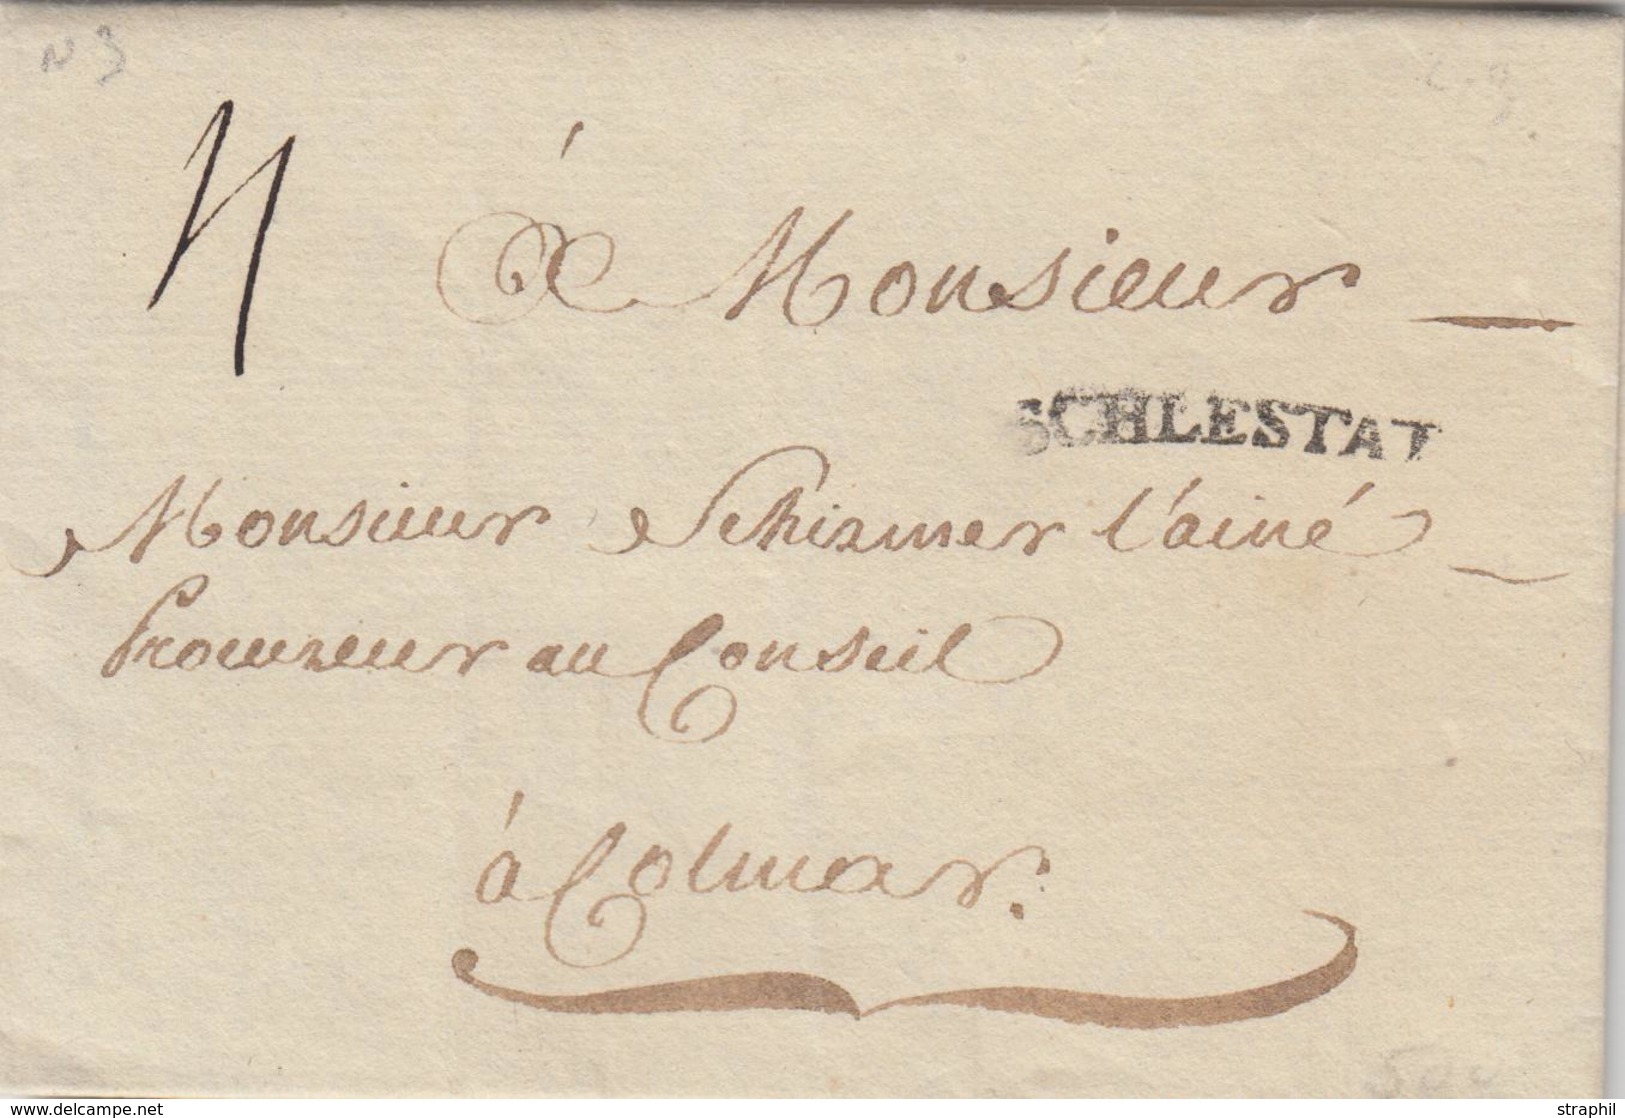 N 3
4
à Monsieur
SCHLESTAT
Monsieur Schirmer l'ainé
Procureur au Conseil
à Colmar.
www.delcampe.net
straphil